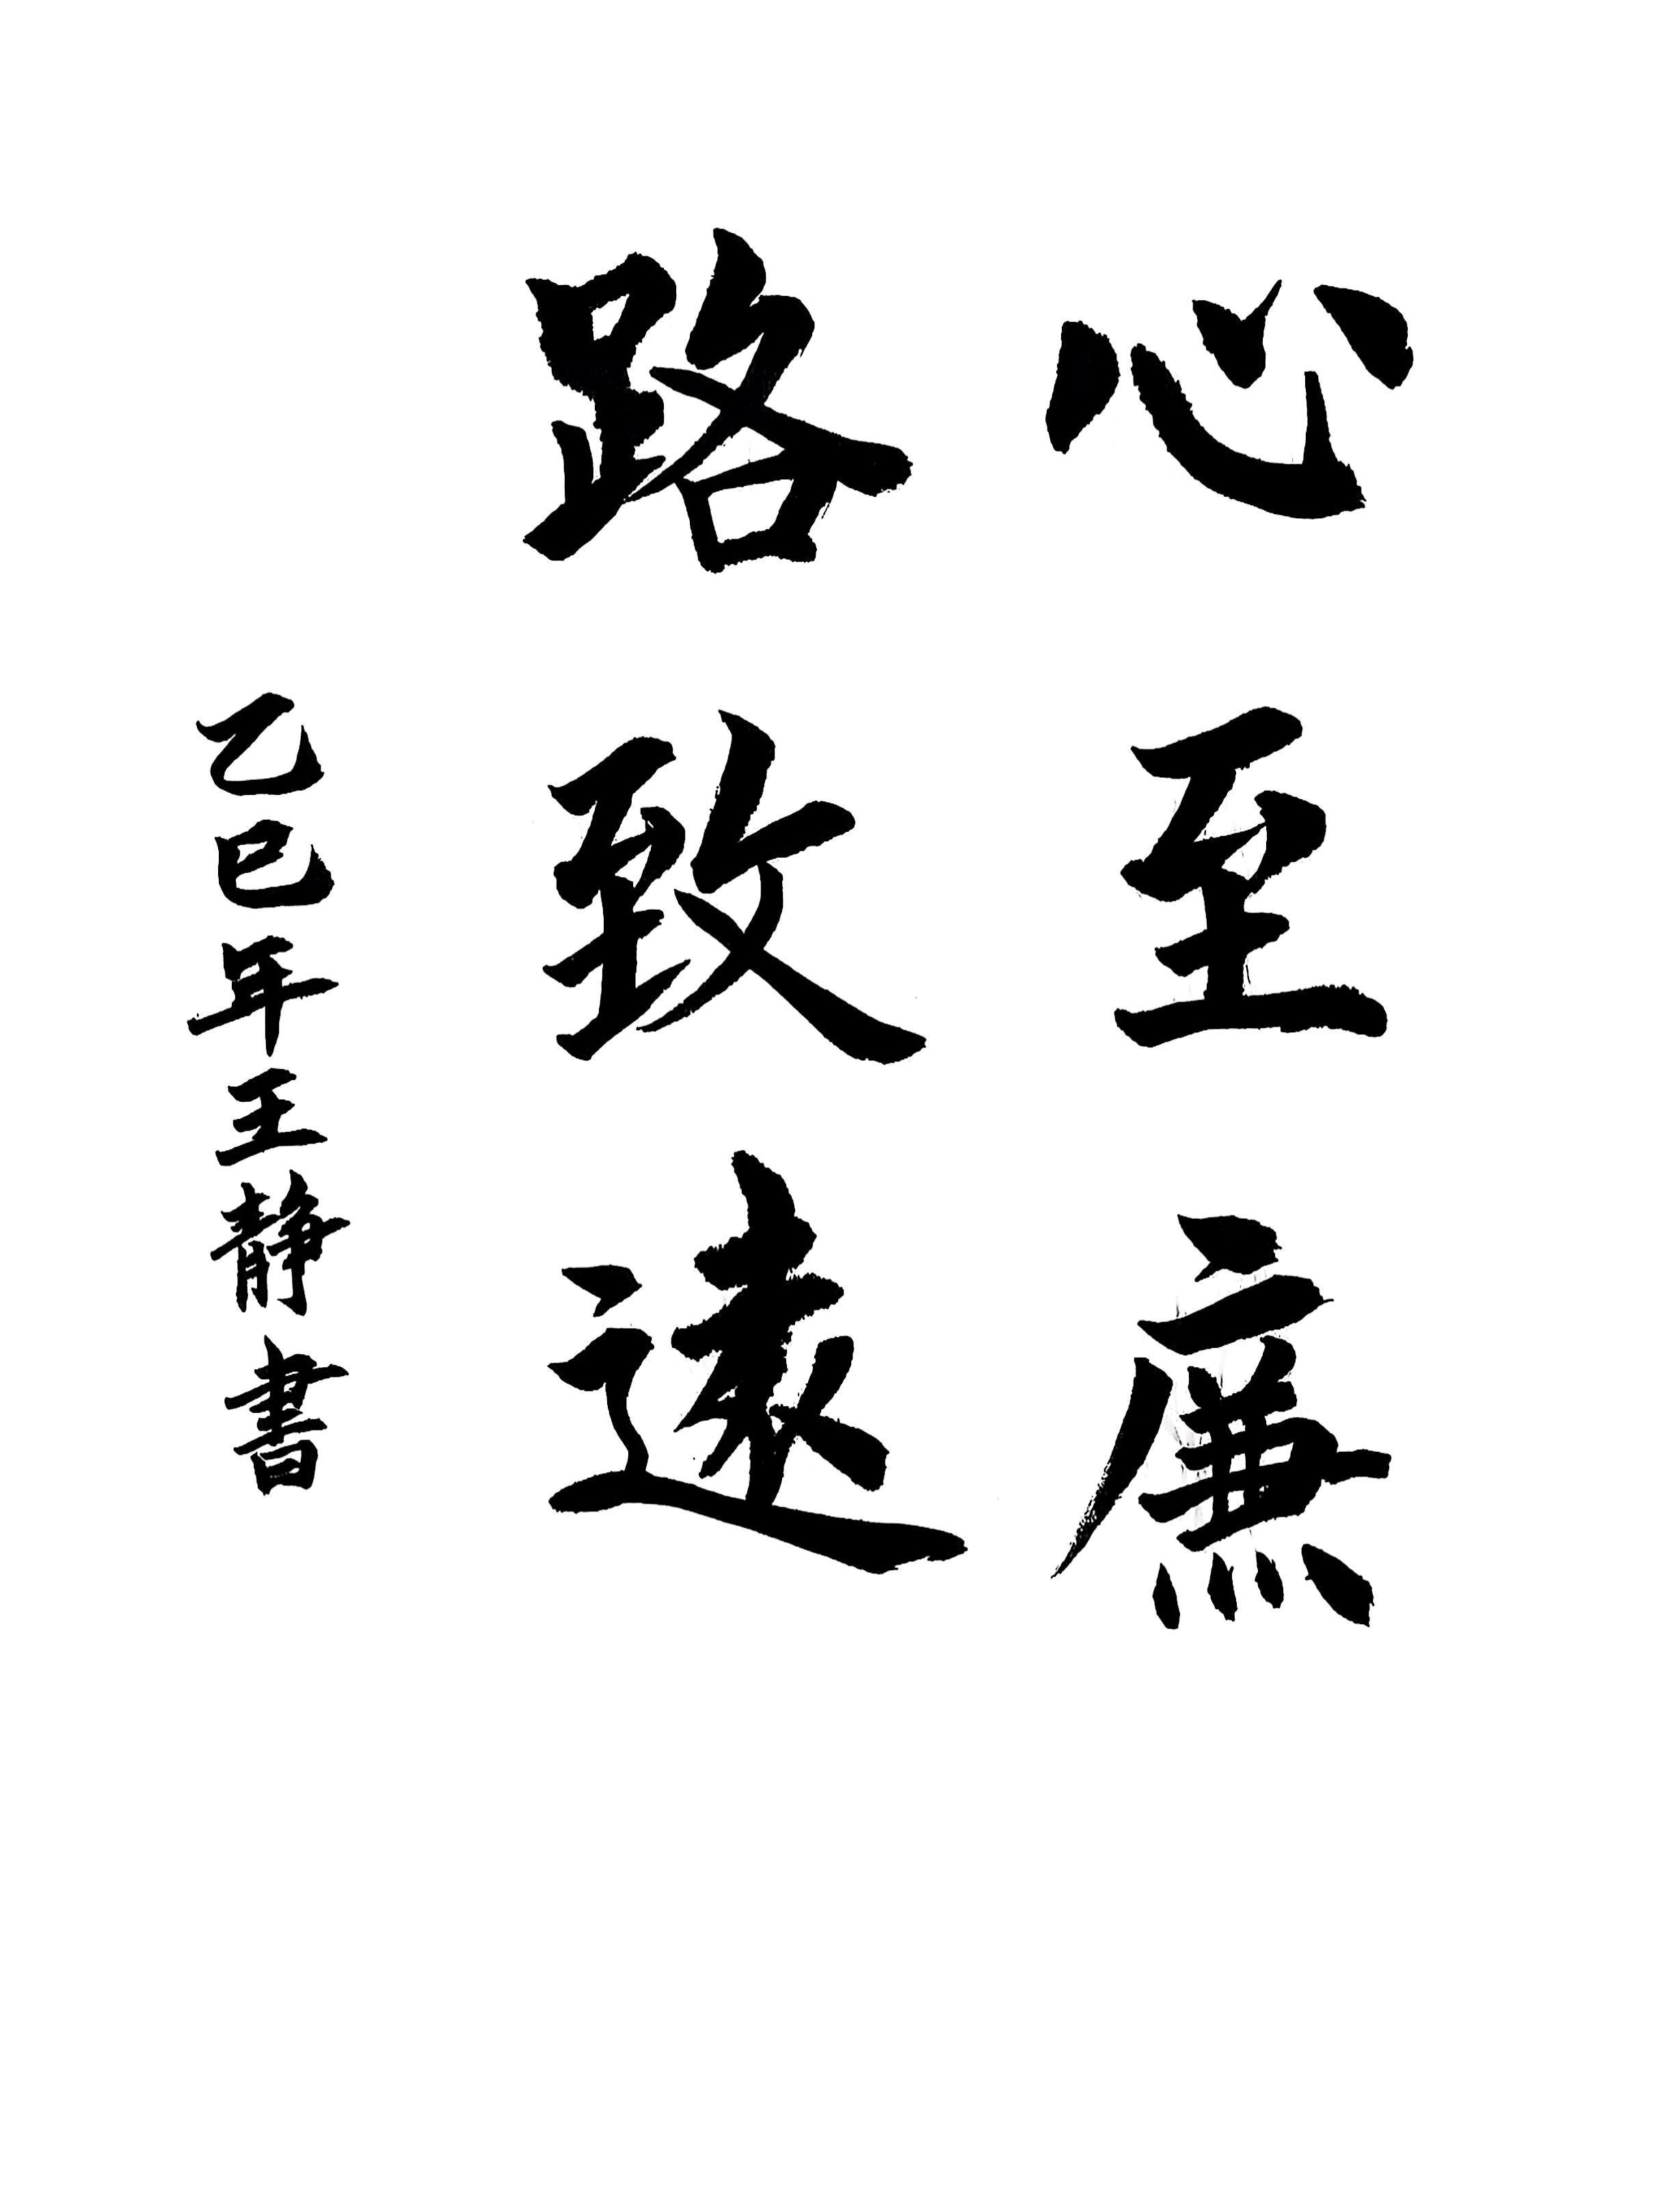 心至廉
路致遠
乙巳年王静書